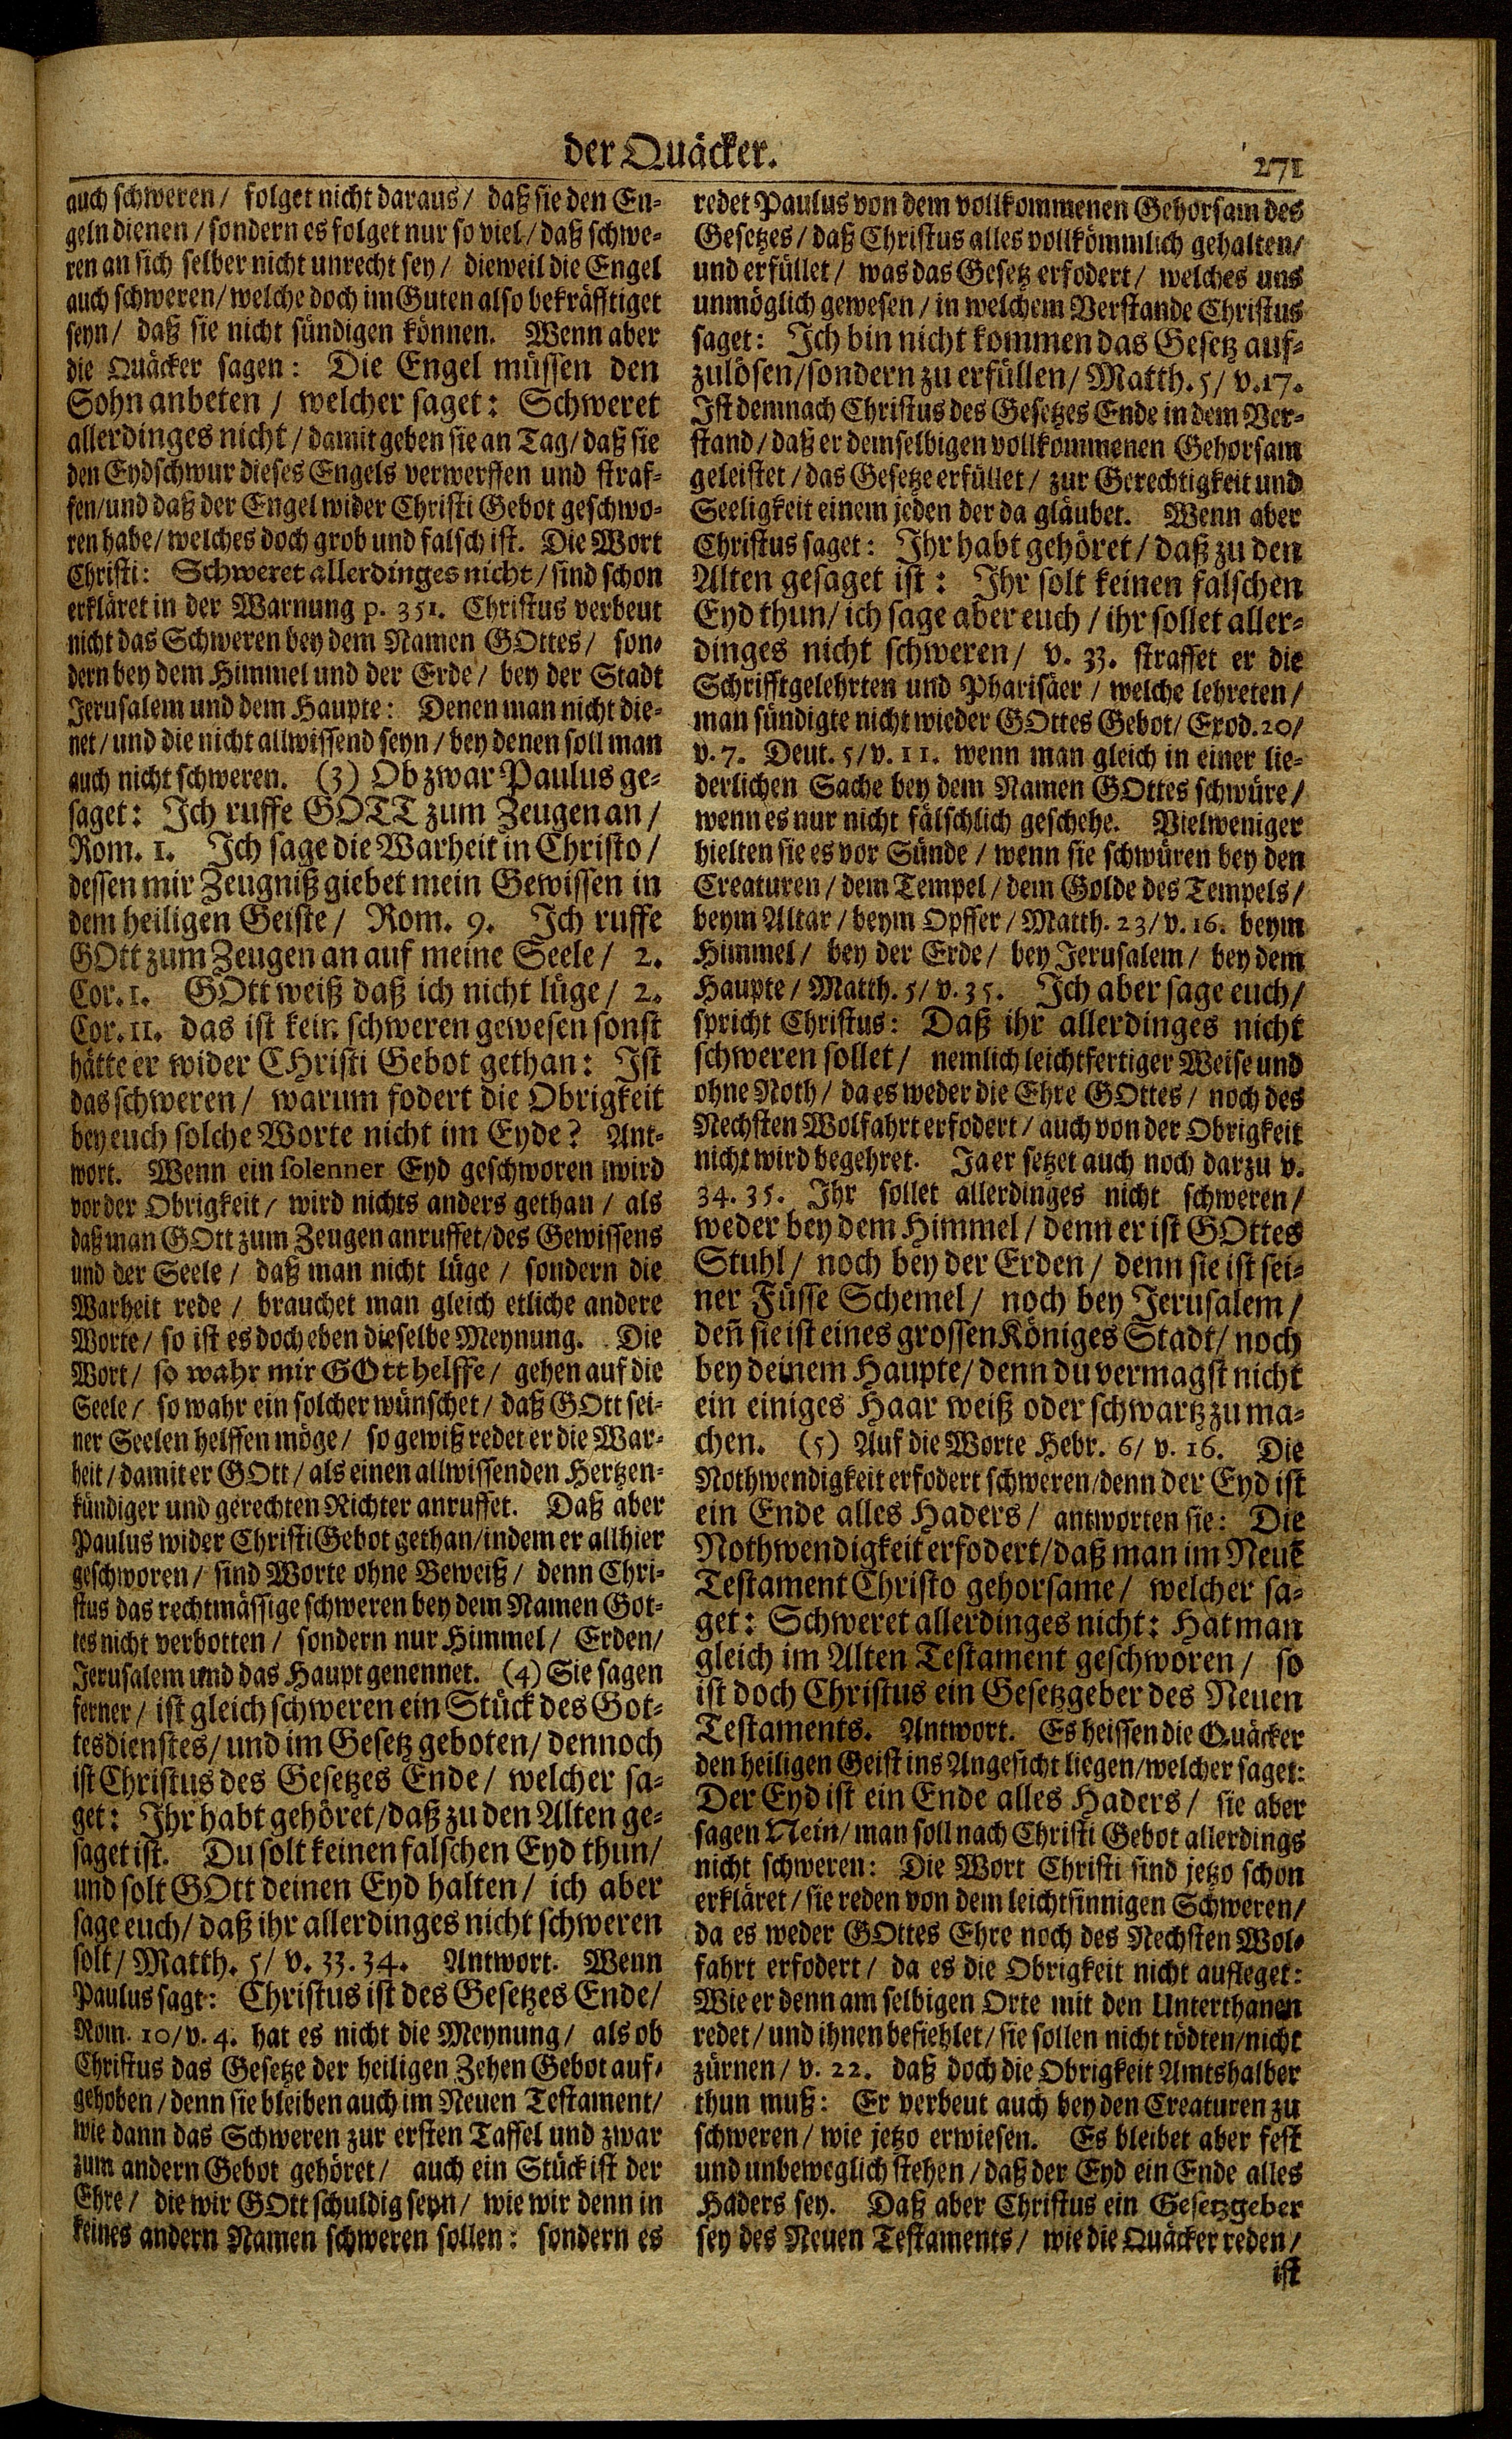 der Quäcker.
271
auch schweren / folget nicht daraus / daß sie den En-
geln dienen / sondern es folget nur so viel / daß schwe-
ren an sich selber nicht unrecht sey / dieweil die Engel
auch schweren / welche doch im Guten also bekräfftiget
seyn / daß sie nicht sündigen können. Wenn aber
die Quäcker sagen: Die Engel müssen den
Sohn anbeten / welcher saget: Schweret
allerdinges nicht / damit geben sie an Tag / daß sie
den Eydschwur dieses Engels verwerffen und straf-
fen / und daß der Engel wider Christi Gebot geschwo-
ren habe / welches doch grob und falsch ist. Die Wort
Christi: Schweret allerdinges nicht / sind schon
erkläret in der Warnung p. 351. Christus verbeut
nicht das Schweren bey dem Namen GOttes / son-
dern bey dem Himmel und der Erde / bey der Stadt
Jerusalem und dem Haupte: Denen man nicht die-
net / und die nicht allwissend seyn / bey denen soll man
auch nicht schweren. (3) Ob zwar Paulus ge-
saget: Ich ruffe GOTT zum Zeugen an /
Rom. 1. Ich sage die Warheit in Christo /
dessen mir Zeugniß giebet mein Gewissen in
dem heiligen Geiste / Rom. 9. Ich ruffe
GOtt zum Zeugen an auf meine Seele / 2.
Cor. 1. GOtt weiß daß ich nicht lüge / 2.
Cor. 11. das ist kein schweren gewesen sonst
hätte er wider CHristi Gebot gethan: Ist
das schweren / warum fodert die Obrigkeit
bey euch solche Worte nicht im Eyde? Ant-
wort. Wenn ein solenner Eyd geschworen wird
vor der Obrigkeit / wird nichts anders gethan / als
daß man GOtt zum Zeugen anruffet / des Gewissens
und der Seele / daß man nicht lüge / sondern die
Warheit rede / brauchet man gleich etliche andere
Worte / so ist es doch eben dieselbe Meynung. Die
Wort / so wahr mir GOtt helffe / gehen auf die
Seele / so wahr ein solcher wünschet / daß GOtt sei-
ner Seelen helffen möge / so gewiß redet er die War-
heit / damit er GOtt / als einen allwissenden Hertzen-
kündiger und gerechten Richter anruffet. Daß aber
Paulus wider Christi Gebot gethan / indem er allhier
geschworen / sind Worte ohne Beweiß / denn Chri-
stus das rechtmässige schweren bey dem Namen Got-
tes nicht verbotten / sondern nur Himmel / Erden /
Jerusalem und das Haupt genennet. (4) Sie sagen
ferner / ist gleich schweren ein Stück des Got-
tesdienstes / und im Gesetz geboten / dennoch
ist Christus des Gesetzes Ende / welcher sa-
get: Ihr habt gehöret / daß zu den Alten ge-
saget ist. Du solt keinen falschen Eyd thun /
und solt GOtt deinen Eyd halten / ich aber
sage euch / daß ihr allerdinges nicht schweren
solt / Matth. 5 / v. 33. 34. Antwort. Wenn
Paulus sagt: Christus ist des Gesetzes Ende /
Rom. 10 / v. 4. hat es nicht die Meynung / als ob
Christus das Gesetze der heiligen Zehen Gebot auf-
gehoben / denn sie bleiben auch im Neuen Testament /
wie dann das Schweren zur ersten Taffel und zwar
zum andern Gebot gehöret / auch ein Stück ist der
Ehre / die wir GOtt schuldig seyn / wie wir denn in
keines andern Namen schweren sollen: sondern es
redet Paulus von dem vollkommenen Gehorsam des
Gesetzes / daß Christus alles vollkömmlich gehalten /
und erfüllet / was das Gesetz erfodert / welches uns
unmöglich gewesen / in welchem Verstande Christus
saget: Ich bin nicht kommen das Gesetz auf-
zulösen / sondern zu erfüllen / Matth. 5 / v. 17.
Ist demnach Christus des Gesetzes Ende in dem Ver-
stand / daß er demselbigen vollkommenen Gehorsam
geleistet / das Gesetze erfüllet / zur Gerechtigkeit und
Seeligkeit einem jeden der da gläubet. Wenn aber
Christus saget: Ihr habt gehöret / daß zu den
Alten gesaget ist: Ihr solt keinen falschen
Eyd thun / ich sage aber euch / ihr sollet aller-
dinges nicht schweren / v. 33. straffet er die
Schrifftgelehrten und Pharisäer / welche lehreten /
man sündigte nicht wieder GOttes Gebot / Exod. 20 /
v. 7. Deut. 5 / v. 11. wenn man gleich in einer lie-
derlichen Sache bey dem Namen GOttes schwüre /
wenn es nur nicht fälschlich geschehe. Vielweniger
hielten sie es vor Sünde / wenn sie schwüren bey den
Creaturen / dem Tempel / dem Golde des Tempels /
beym Altar / beym Opffer / Matth. 23 / v. 16. beym
Himmel / bey der Erde / bey Jerusalem / bey dem
Haupte / Matth. 5 / v. 35. Ich aber sage euch /
spricht Christus: Daß ihr allerdinges nicht
schweren sollet / nemlich leichtfertiger Weise und
ohne Noth / da es weder die Ehre GOttes / noch des
Nechsten Wolfahrt erfodert / auch von der Obrigkeit
nicht wird begehret. Ja er setzet auch noch darzu v.
34. 35. Ihr sollet allerdinges nicht schweren /
weder bey dem Himmel / denn er ist GOttes
Stuhl / noch bey der Erden / denn sie ist sei-
ner Füsse Schemel / noch bey Jerusalem /
deñ sie ist eines grossen Königes Stadt / noch
bey deinem Haupte / denn du vermagst nicht
ein einiges Haar weiß oder schwartz zu ma-
chen. (5) Auf die Worte Hebr. 6 / v. 16. Die
Nothwendigkeit erfodert schweren / denn der Eyd ist
ein Ende alles Haders / antworten sie: Die
Nothwendigkeit erfodert / daß man im Neuẽ
Testament Christo gehorsame / welcher sa-
get: Schweret allerdinges nicht: Hat man
gleich im Alten Testament geschworen / so
ist doch Christus ein Gesetzgeber des Neuen
Testaments. Antwort. Es heissen die Quäcker
den heiligen Geist ins Angesicht liegen / welcher saget:
Der Eyd ist ein Ende alles Haders / sie aber
sagen Nein / man soll nach Christi Gebot allerdings
nicht schweren: Die Wort Christi sind jetzo schon
erkläret / sie reden von dem leichtsinnigen Schweren /
da es weder GOttes Ehre noch des Nechsten Wol-
fahrt erfodert / da es die Obrigkeit nicht aufleget:
Wie er denn am selbigen Orte mit den Unterthanen
redet / und ihnen befiehlet / sie sollen nicht tödten / nicht
zürnen / v. 22. daß doch die Obrigkeit Amtshalber
thun muß: Er verbeut auch bey den Creaturen zu
schweren / wie jetzo erwiesen. Es bleibet aber fest
und unbeweglich stehen / daß der Eyd ein Ende alles
Haders sey. Daß aber Christus ein Gesetzgeber
sey des Neuen Testaments / wie die Quäcker reden /
ist